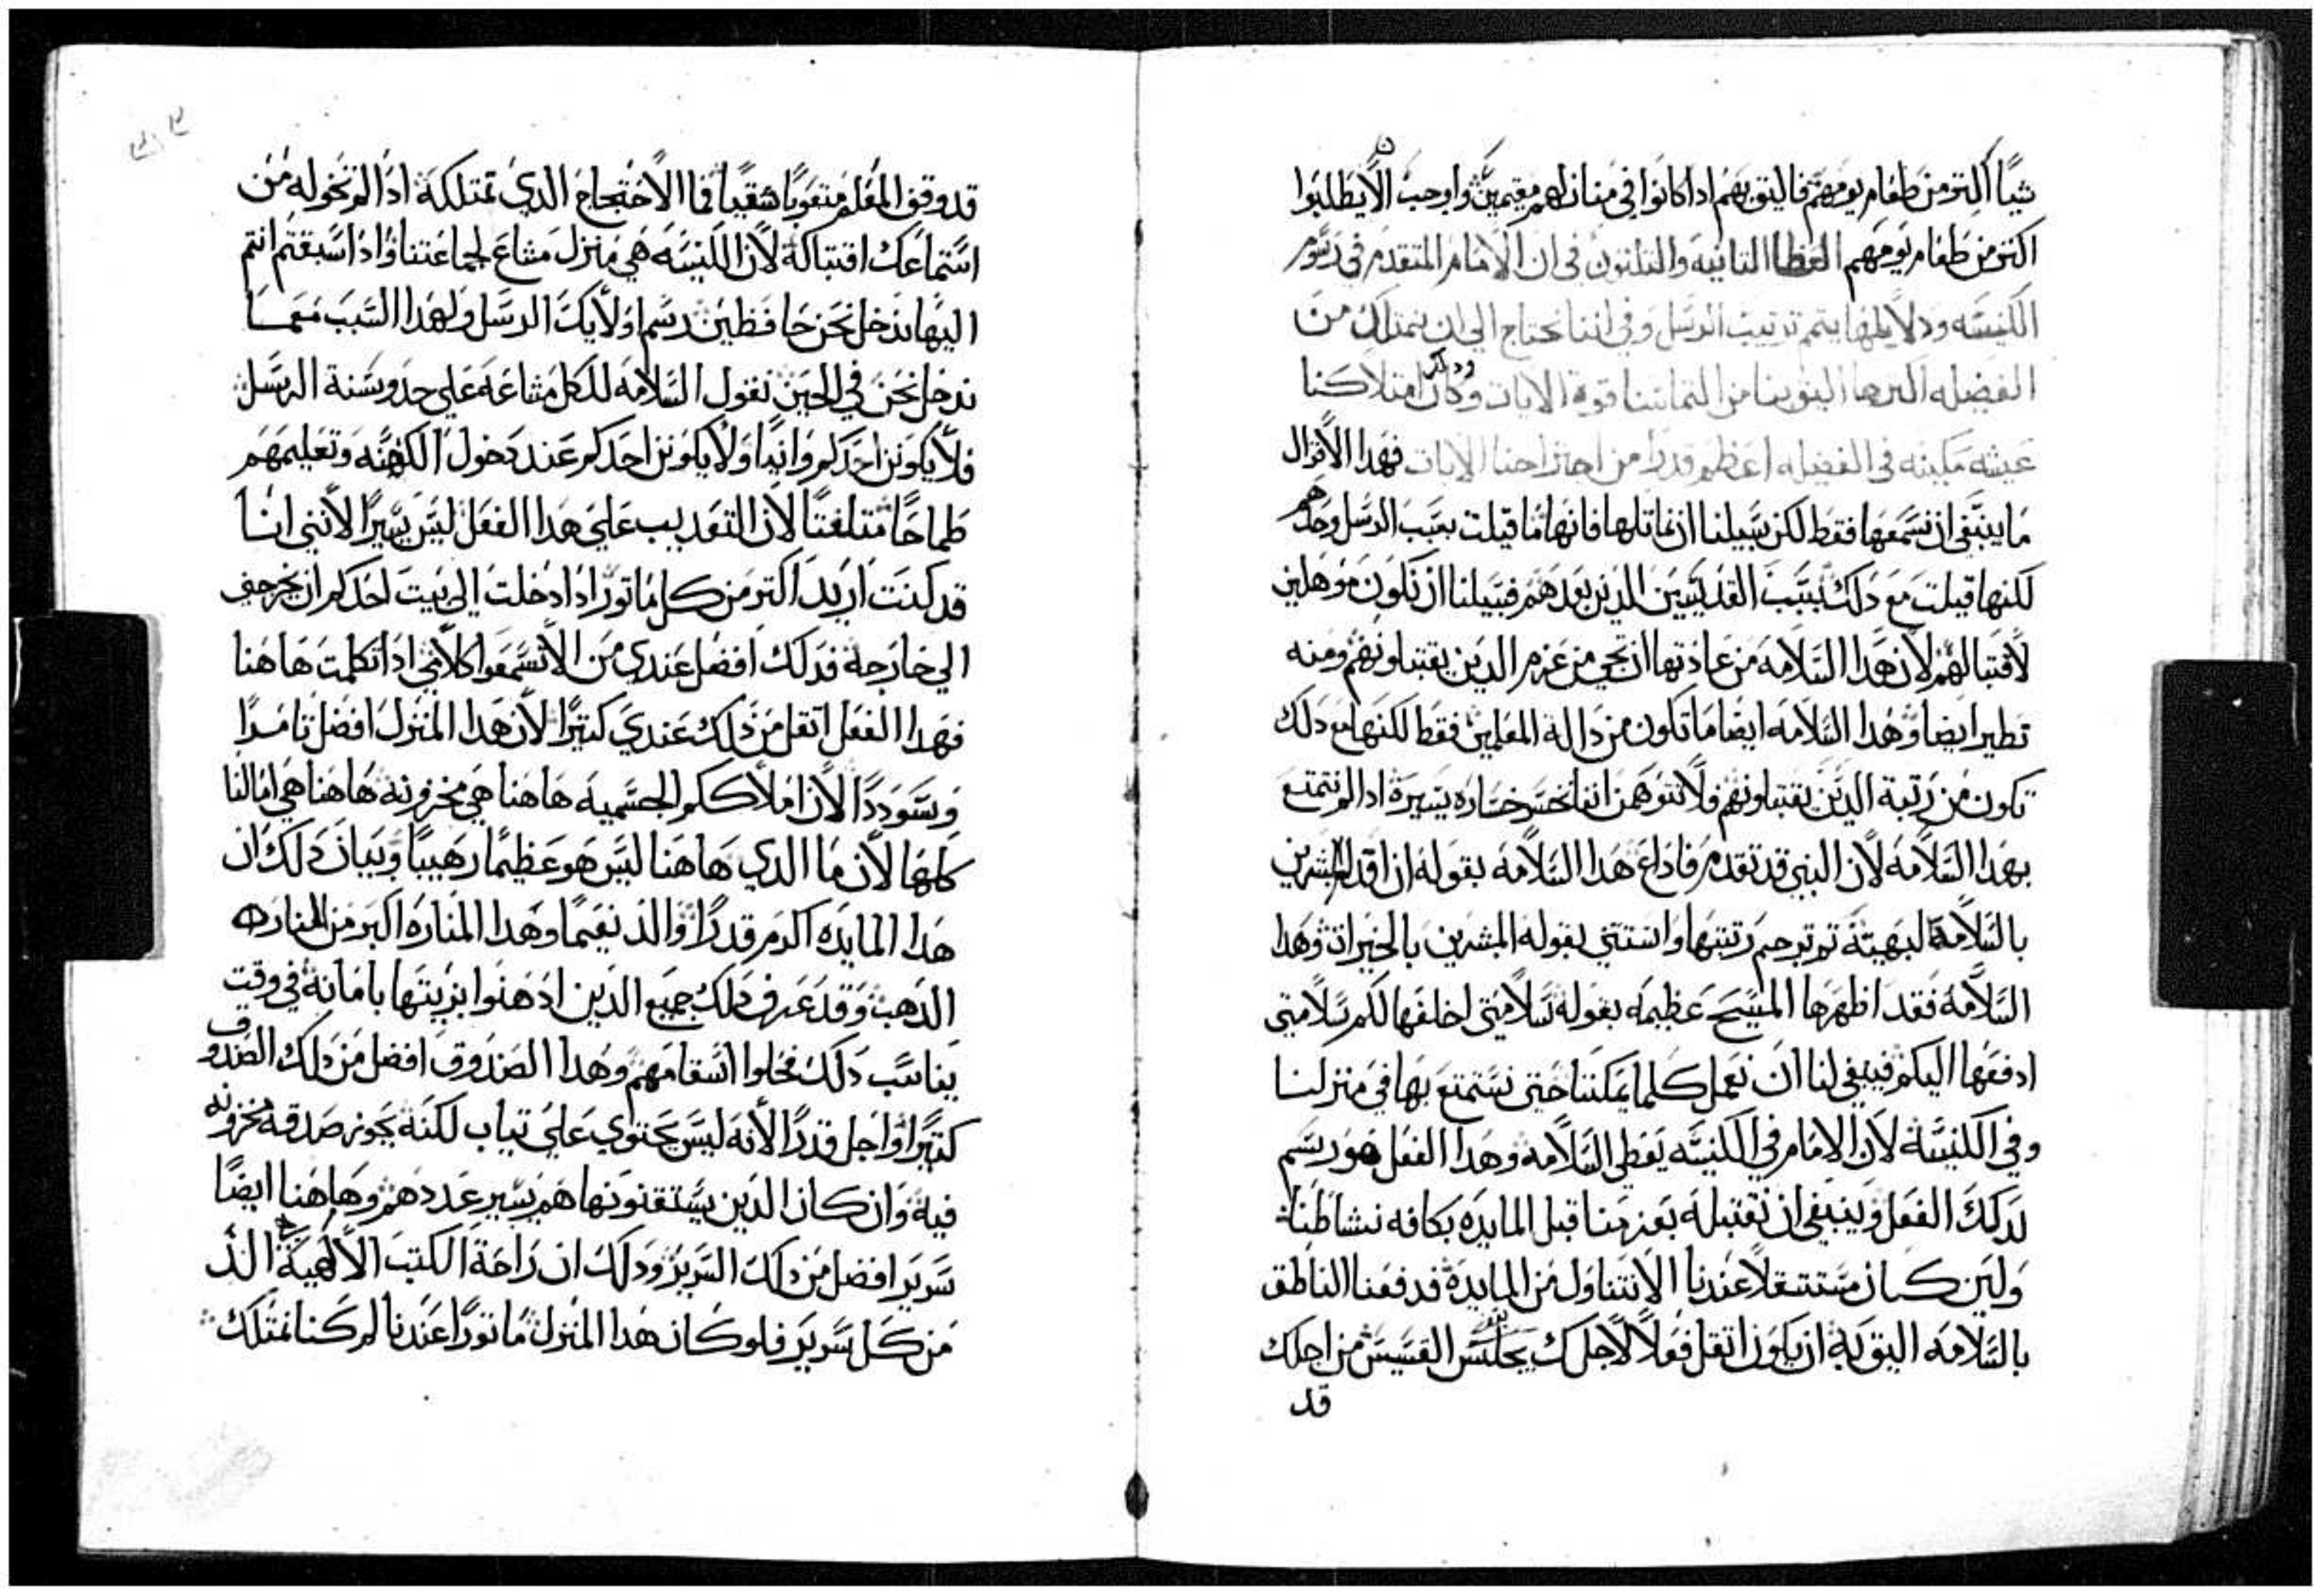 شيًا اكتر من طعام يومهم فاليق بهم اذا كانوا في منازلهم مقيمين واوجب الا يطلبوا
اكتر من طعام يومهم العظة التانيه والتلتون في ان الامام المتقدم في رسوم
الكنيسه ودلايلها يتم ترتيب الرسل وفي اننا نحتاج الي ان نمتلك من
الفضيله اكترها اليق بنا من التماسنا قوة الايات وذلك ان امتلاكنا
عيشه مكينه في الفضيله اعظم قدرًا من اجتراحنا الايات فهدا الاقوال
ما ينبغي ان نسمعها فقط لكن سبيلنا ان نماتلها فانها ما قيلت بسبب الرسل وحدهم
لكنها قيلت مع دلك بسبب القديسين الدين بعدهم فسبيلنا ان نكون موهلين
لاقتبالهم لان هدا السلامه من عادتها ان تجي من عزم الدين يقتبلونهم ومنه
تطير ايضا وهدا السلامه ايضا ما تكون من دالة المعلمين فقط لكنها مع دلك
تكون من رتبة الدين يقتبلونهم ولا نتوهمن اننا نخسر خساره يسيرة ادا لم نتمتع
بهدا السلامه لان النبي قد تقدم فاداع هدا السلامه بقوله ان اقدام المبشرين
بالسلامة لبهيتة تم ترجم رتبتها واستتني بقوله المبشرين بالخيرات وهدا
السلامه فقد اظهرها المسيح عظيمه بقوله سلامتي اخلفها لكم سلامتي
ادفعها اليكم فينبغي لنا ان نعمل كلما يمكننا حتي نستمتع بها في منزلنا
وفي الكنيسة لان الامام في الكنيسه يعطي السلامه وهدا الفعل هو رسم
لدلك الفعل وينبغي ان نقتبله بعزمنا قبل المايده بكافه نشاطنا
ولين كان مستتقلا عندنا الا نتناول من المايدة فدفعنا الناطق
بالسلامه اليق به ان يكون اتقل فعلا لاجلك يجلس القسيس من اجلك
قد
قد وقف المعلم متعوبًا شقيًا فما الاحتجاج الدي تمتلكه ادا لم تخوله من
استماعك اقتباله لان الكنيسه هي منزل مشاع لجماعتنا وادا سبقتم انتم
اليها ندخل نحن حافظين رسم اولايك الرسل ولهدا السبب معما
ندخل نحن في الحين نقول السلامه للكل مشاعه علي حد وسنة الرسل
فلا يكونن احدكم وانيًا ولا يكونن احدكم عند دخول الكهنه وتعليمهم
طماحًا متلفتًا لان التعديب علي هدا الفعل ليس يسيرًا لانني انا
قد كنت اريد اكتر من كل ماتور ادا دخلت الي بيت احدكم ان يخرجني
الي خارجه فدلك افضل عندي من الا تسمعوا كلامي ادا تكلمت هاهنا
فهدا الفعل اتقل من دلك عندي كتيرًا لان هدا المنزل افضل تامرًا
وسوددًا لان املاككم الجسميه هاهنا هي مخزونه هاهنا هي امالنا
كلها لان ما الدي هاهنا ليس هو عظيمًا رهيبًا وبيان دلك ان
هدا المايده اكرم قدرًا والد نعيمًا وهدا المناره اكبر من المناره
الدهب وقد عرف دلك جميع الدين ادهنوا بزيتها بامانه في وقت
يناسب دلك فحلوا اسقامهم وهدا الصندوق افضل من دلك الصندوق
كتيرًا واجل قدرًا لانه ليس يحتوي علي تياب لكنه يحوز صدقه مخزونه
فيه وان كان الدين يستقنونها هم يسير عددهم وهاهنا ايضًا
سرير افضل من دلك السرير ودلك ان راحة الكتب الالهية الد
من كل سرير فلو كان هدا المنزل ماتورًا عندنا لم كنا نمتلك